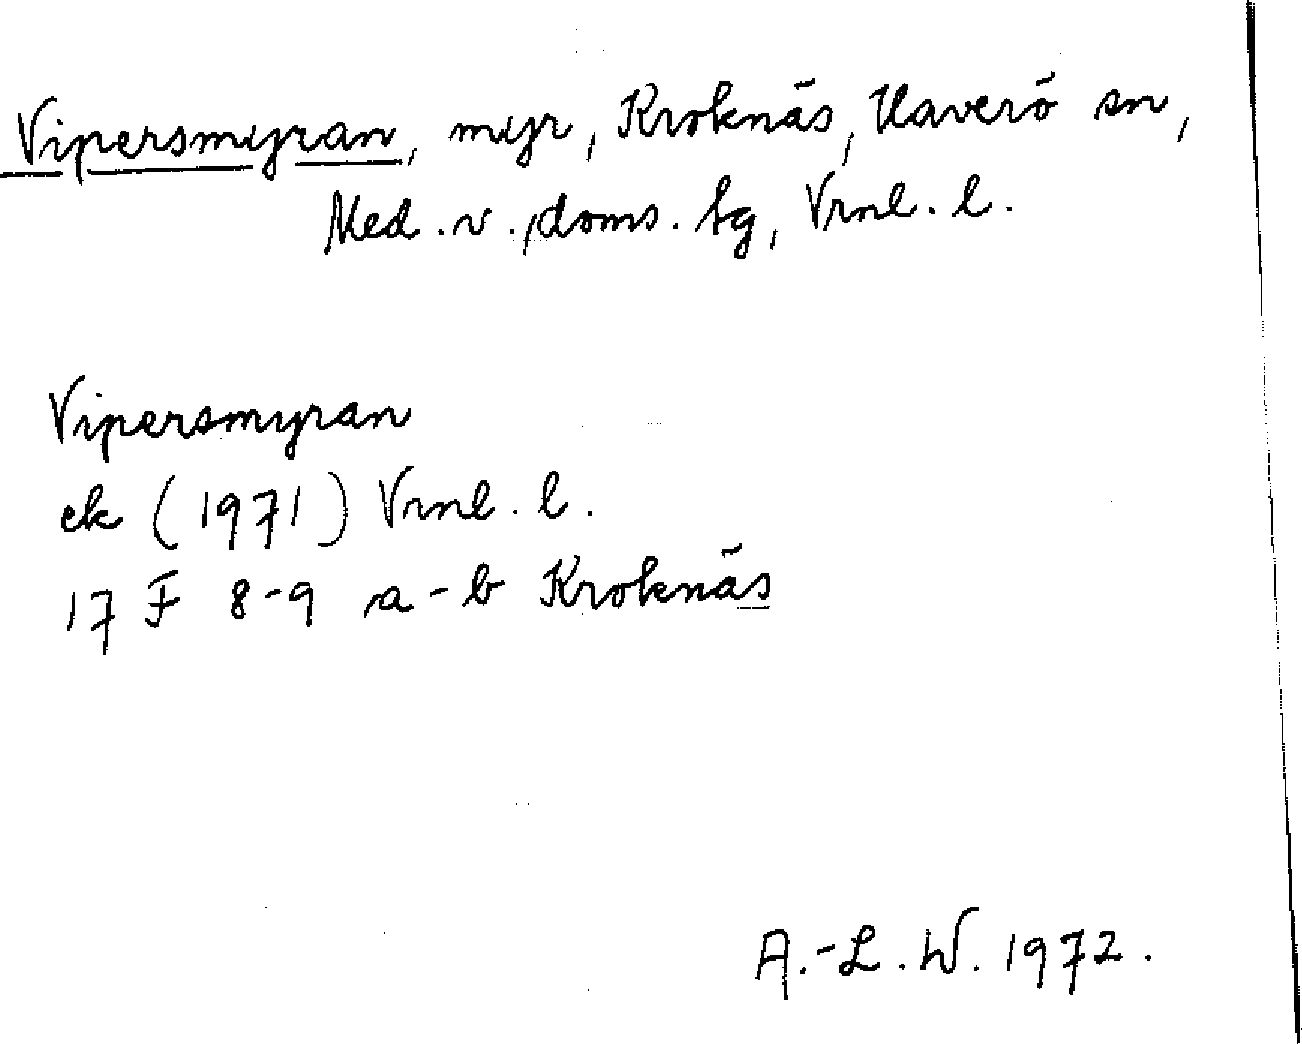 Vipersmyran, myr, Kroknäs, Haverö sn,
Med. v. doms. tg, Vrnl. l.
Vipersmyran
ek (1971) Vrnl. l.
17 F 8-9 a-b Kroknäs
A.-L. W. 1972.